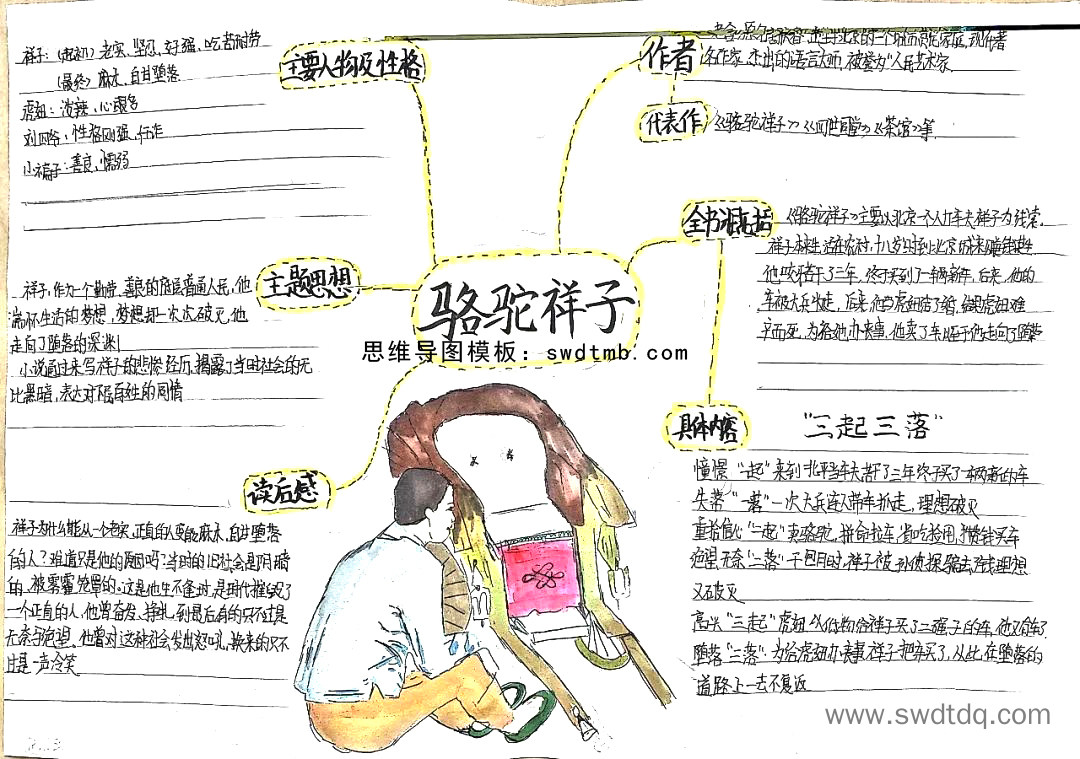 主要人物及性格
祥子：（起初）老实、坚忍、好强、吃苦耐劳
（最终）麻木、自甘堕落
虎妞：泼辣、心眼多
刘四爷：性格刚强、
小福子：善良、懦弱
作者
名作家，杰出的语言大师，被誉为“人民艺术家。
代表作
《骆驼祥子》《四世同堂》《茶馆》等
全书概括
《骆驼祥子》主要以北京一个人力车夫祥子为线索。
祥子本来生活在农村，十八岁时到北京城来赚钱
他咬牙苦干了三年，终于买到了一辆新车，后来，他的
车被大兵
为给她办丧事，他卖了车
主题思想
祥子，作为一个勤劳、善良的底层普通人民，他
满怀生活的梦想，梦想却一次次破灭，他
走向了堕落的深渊
小说通过来写祥子的悲惨经历，揭露了当时社会的无
比黑暗，表达对底层百姓的同情
骆驼祥子
思维导图模板：swdtmb.com
具体内容
“三起三落”
憧憬 “一起”来到北平当车夫苦干了三年终于买了一辆新的车
失落 “一落”一次大兵连人带车抓走，理想破灭
卖骆驼，拼命拉车，省吃俭用，攒钱买车
“二落”干包月时，祥子被孙侦探骗去钱，理想
又破灭
高兴 “三起”虎妞以低价给祥子买了二强子的车，他又有车了
堕落“三落”为给虎妞办丧事，祥子把车买了，从此，在堕落的
道路上一去不复返
读后感
祥子为什么能从一个老实、正直的人变成麻木、自甘堕落
的人？难道只是他的问题吗？当时的旧社会是阴暗
的、被雾霾笼罩的。这是他生不逢时，是时代摧毁了
一个正直的人，他曾奋发、挣扎，到最后有的只不过是
无奈与绝望。他曾对这种社会发出怒吼，换来的只不
过是一声冷笑
www.swdtdq.com